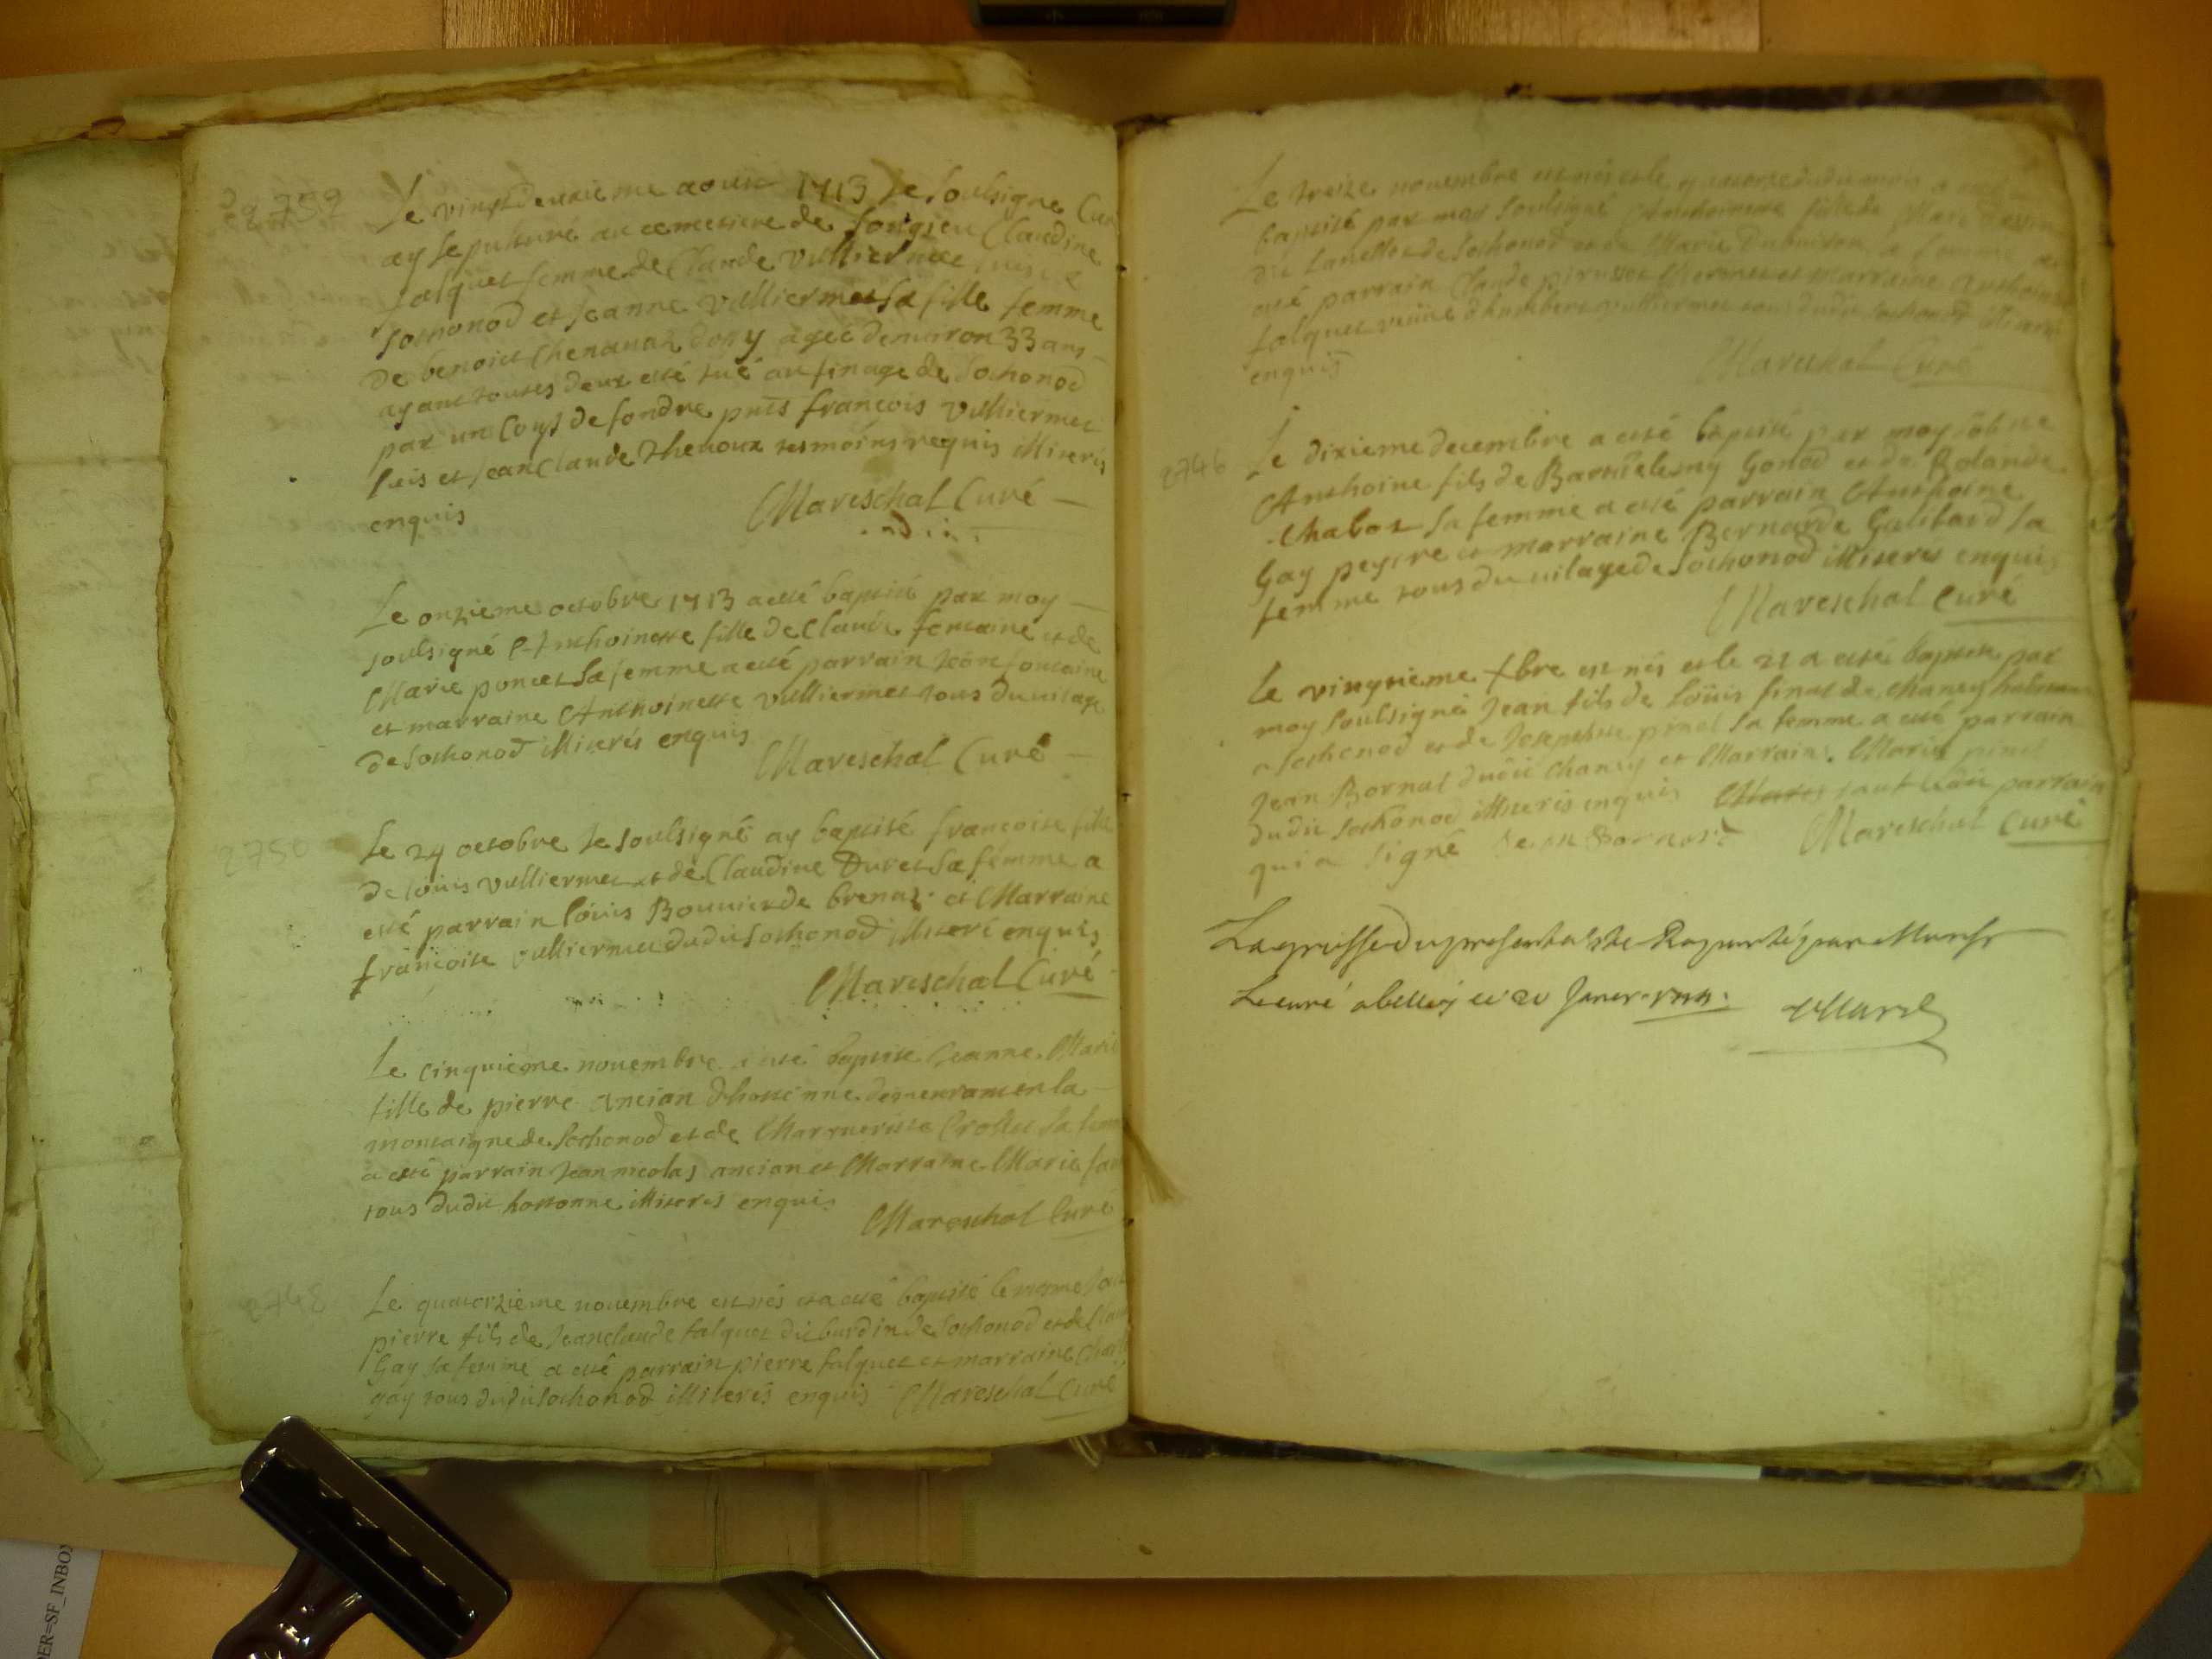 2752
Le vingtdeuxieme aoust 1713 Je soulsigné Curé
ay sepulturé au cemetiere de Songieu Claudine
falquet femme de Claude Vulliermet
Sothonod et Jeanne Vulliermet sa fille femme
de benoict Chenavaz dopy agee denviron 33 ans
ayant toutes deux esté tué au finage de Sothonod
par un Coup de foudre pnts françois Vulliermet
luis et Jean Claude Thevoux tesmoins requis illiterés
enquis
Mareschal Curé
Le onzieme octobre 1713 a esté baptisé par moy
soulsigné Anthoinette fille de Claude fontaine et de
Marie poncet sa femme a esté parrain Jean fontaine
et marraine Anthoinette Vulliermet tous du vilage
de Sothonod illiterés enquis
Mareschal Curé
2750
Le 24 octobre Je soulsigné ay baptisé francoise fille
de louis Vulliermet et de Claudine Duret sa femme a
esté parrain louis Bouvier de brenaz et Marraine
francoise Vulliermet dudit Sothonod illiteré enquis
Mareschal Curé
Le cinquieme novembre a esté baptisé Jeanne Marie
fille de pierre ancian dhotonne demeurant en la
montaigne de Sothonod et de Marguerite Crostet sa femme
a esté parrain Jean nicolas ancian et Marraine Marie
tous dudit hottonne illiterés enquis
Mareschal Curé
Le quatorzieme novembre est nés et a esté baptisé le mesme Jour
pierre fils de Jeanclaude falquet dit burdin de Sothonod et de
Gay sa femme a esté parrain pierre falquet et marraine
gay tous dudit Sothonod illiterés enquis Mareschal Curé
Le treize novembre est nés et le quatorze dudit mois a esté
baptisé par moy soulsigné Anthoinette fille de Marc
dit de Sothonod et de Marie Dubuisson sa femme a
esté parrain Claude et marraine Anthoinette
falquet veuve dhumbert Vulliermet tous dudit Sothonod illiterés
enquis
Mareschal Curé
2746
Le dixieme decembre a esté baptisé par moy sobsné
Anthoine fils de Barthelemy Gonod et de Rolande
Chaboz sa femme a esté parrain Anthoine
Gay peycre et marraine Bernarde Gallbard sa
femme tous du vilage de Sothonod illiterés enquis
Mareschal Curé
Le vingtieme xbre est nés et le 21 a esté baptisé par
moy soulsigné Jean fils de louis finat de Chaney
a Sothonod et de Josephte pinel sa femme a esté parrain
Jean Bornat dudit Chaney et Marraine Marie pinel
dudit Sothonod illiteris enquis sauf ledit parrain
qui a signé Jean Bornat
Mareschal Curé
La grosse du present a esté Raportée par Monsr
Le curé a belley ce 20 Janer